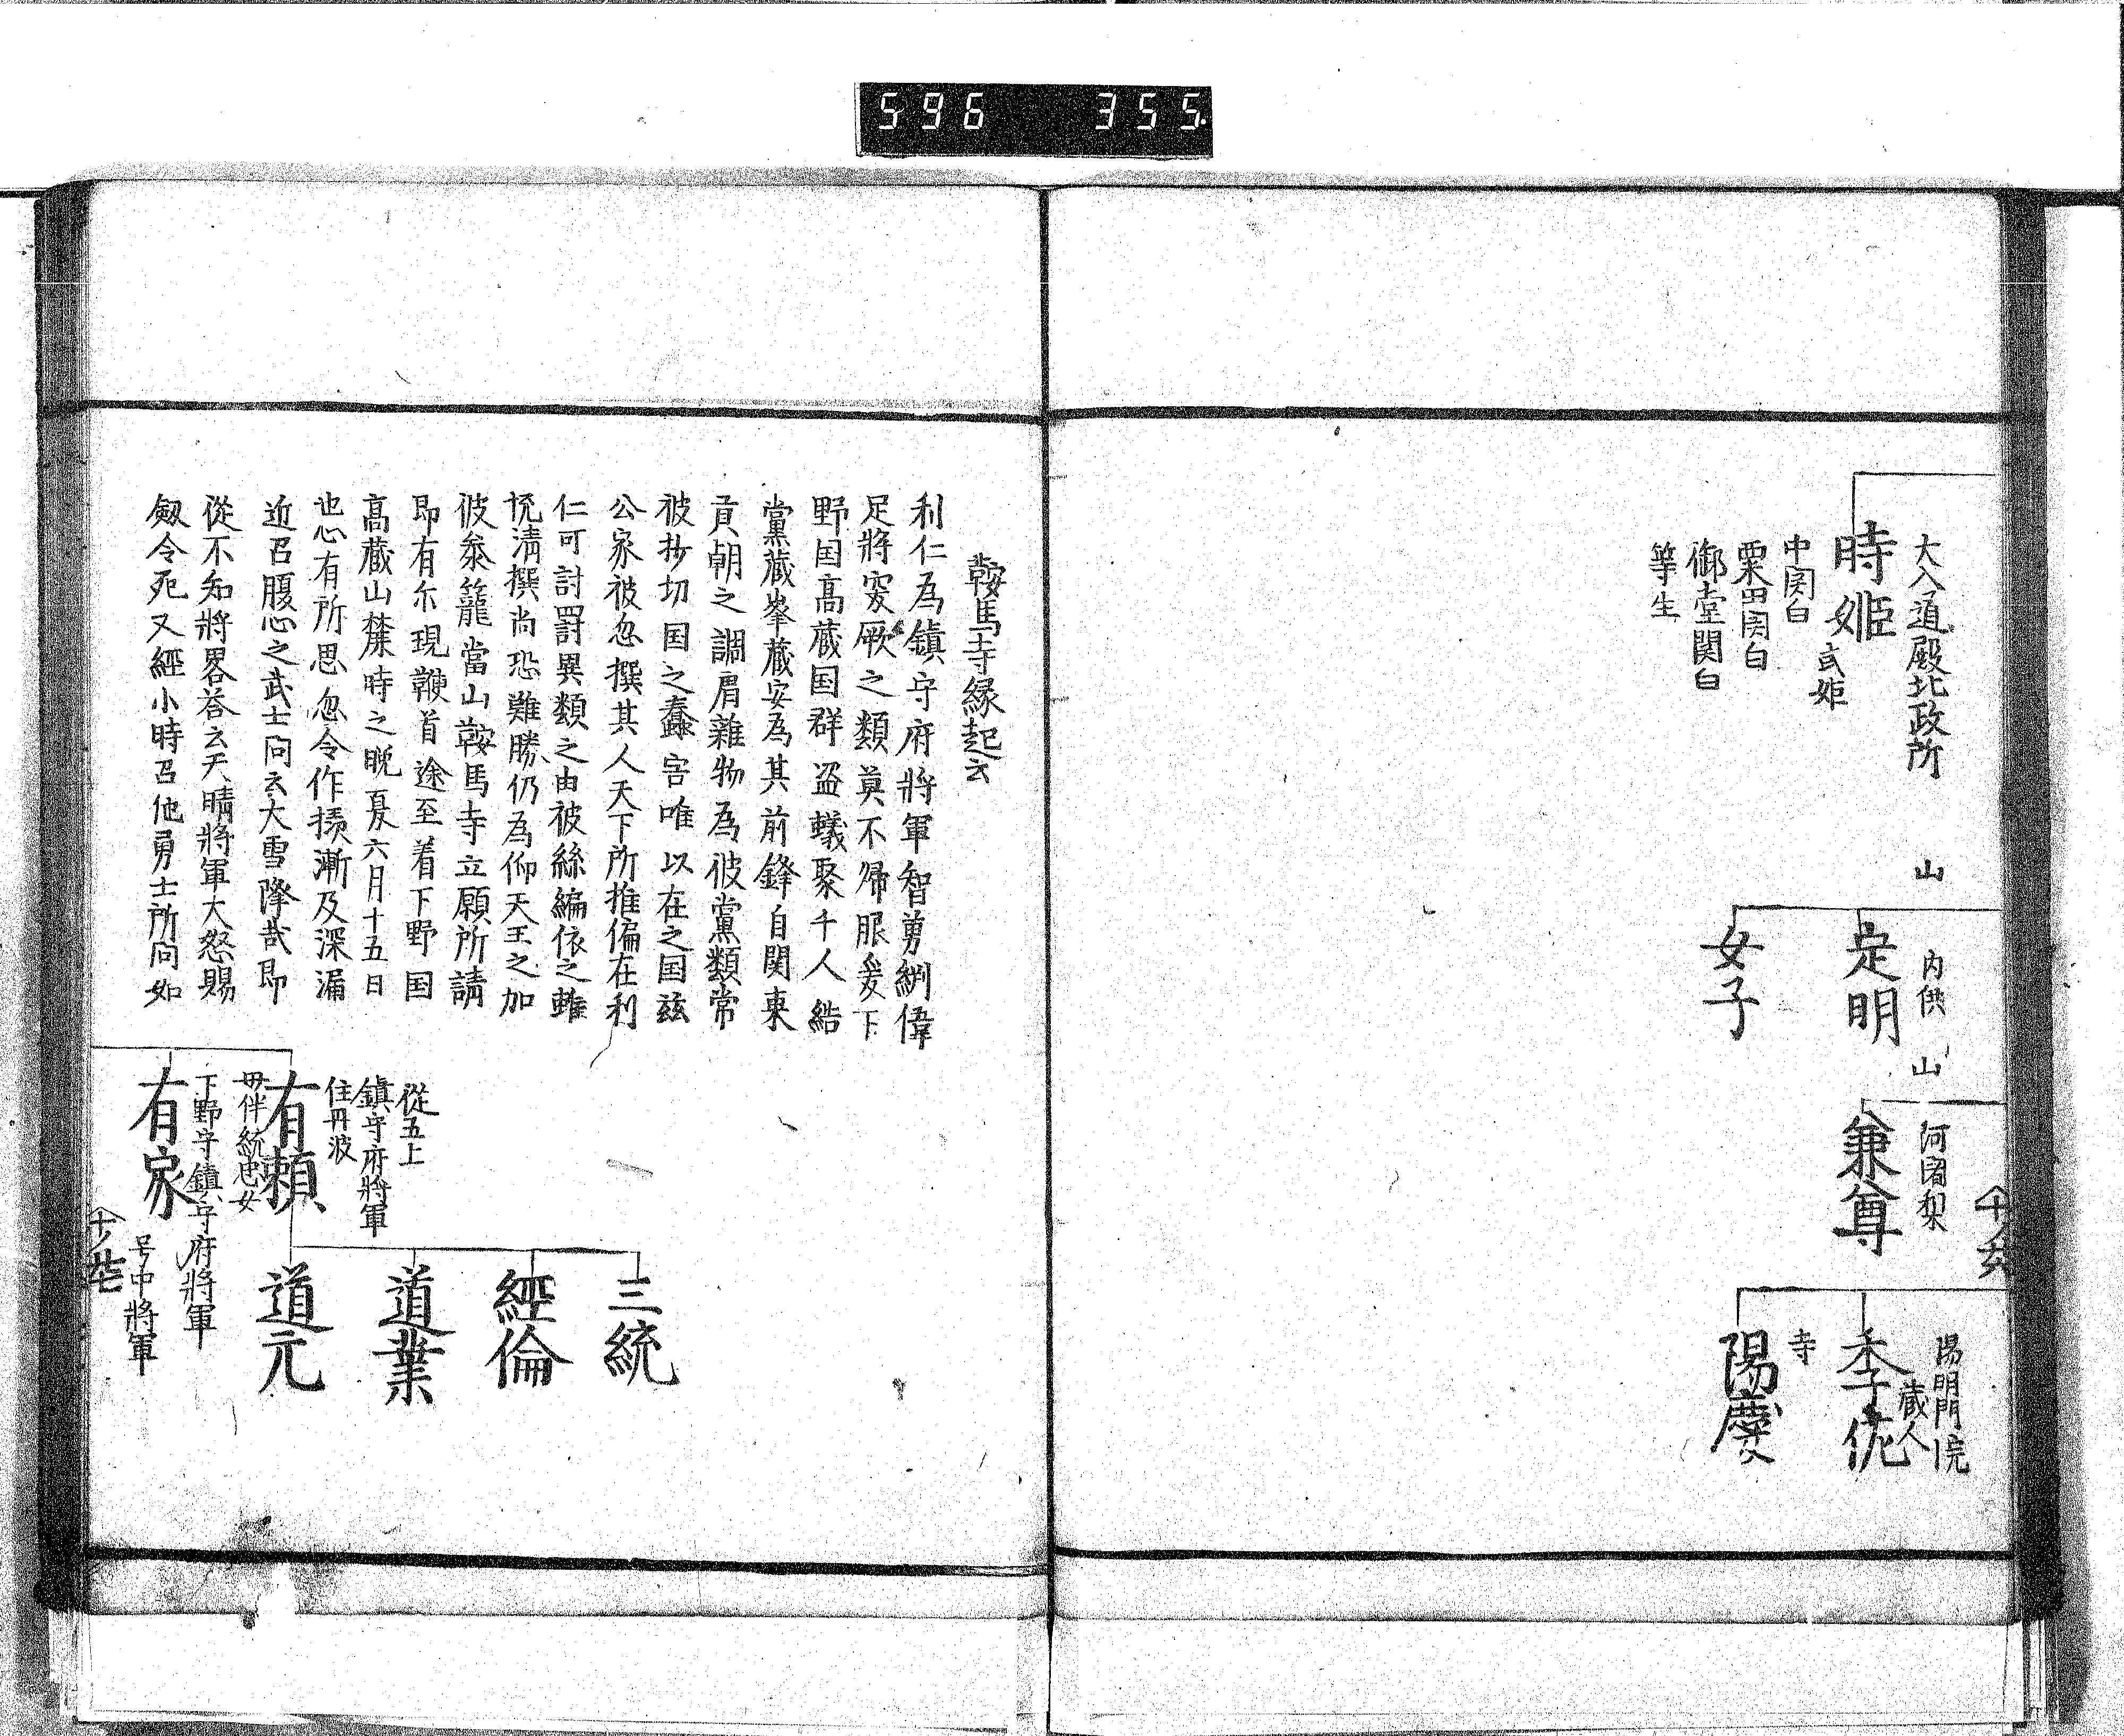 596 355
大入道殿北政所
時姫
或姫
中関白
粟田関白
御堂関白
等生
山
内供
定明
女子
山
阿闍梨
兼尊
陽明門院
蔵人
季佐
寺
陽慶
鞍馬寺縁起云
利仁為鎮守府将軍智勇絅偉
足將突厥之類莫不帰服爰下
野国高蔵国群盗蟻聚千人結
黨蔵峯蔵安為其前鋒自関東
貢朝之調庸雑物為彼黨類常
被抄切国之蠧害唯以在之国茲
公家被忽撰其人天下所推偏在利
仁可討罰異類之由被絲綸依之雖
悦清撰尚恐難勝仍為仰天王之加
彼参籠當山鞍馬寺立願所請
即有尓現鞭首途至着下野国
高蔵山麓時之晩夏六月十五日
也心有所思忽令作㩌漸及深漏
近召腹心之武士問云大雪降哉即
從不知將畧答云天晴將軍大怒賜
劔令死又經小時召他勇士所問如
從五上
鎮守府將軍
住丹波
有頼
母伴統忠女
下野守鎮守府將軍
有家
号中將軍
三統
經倫
道業
道元